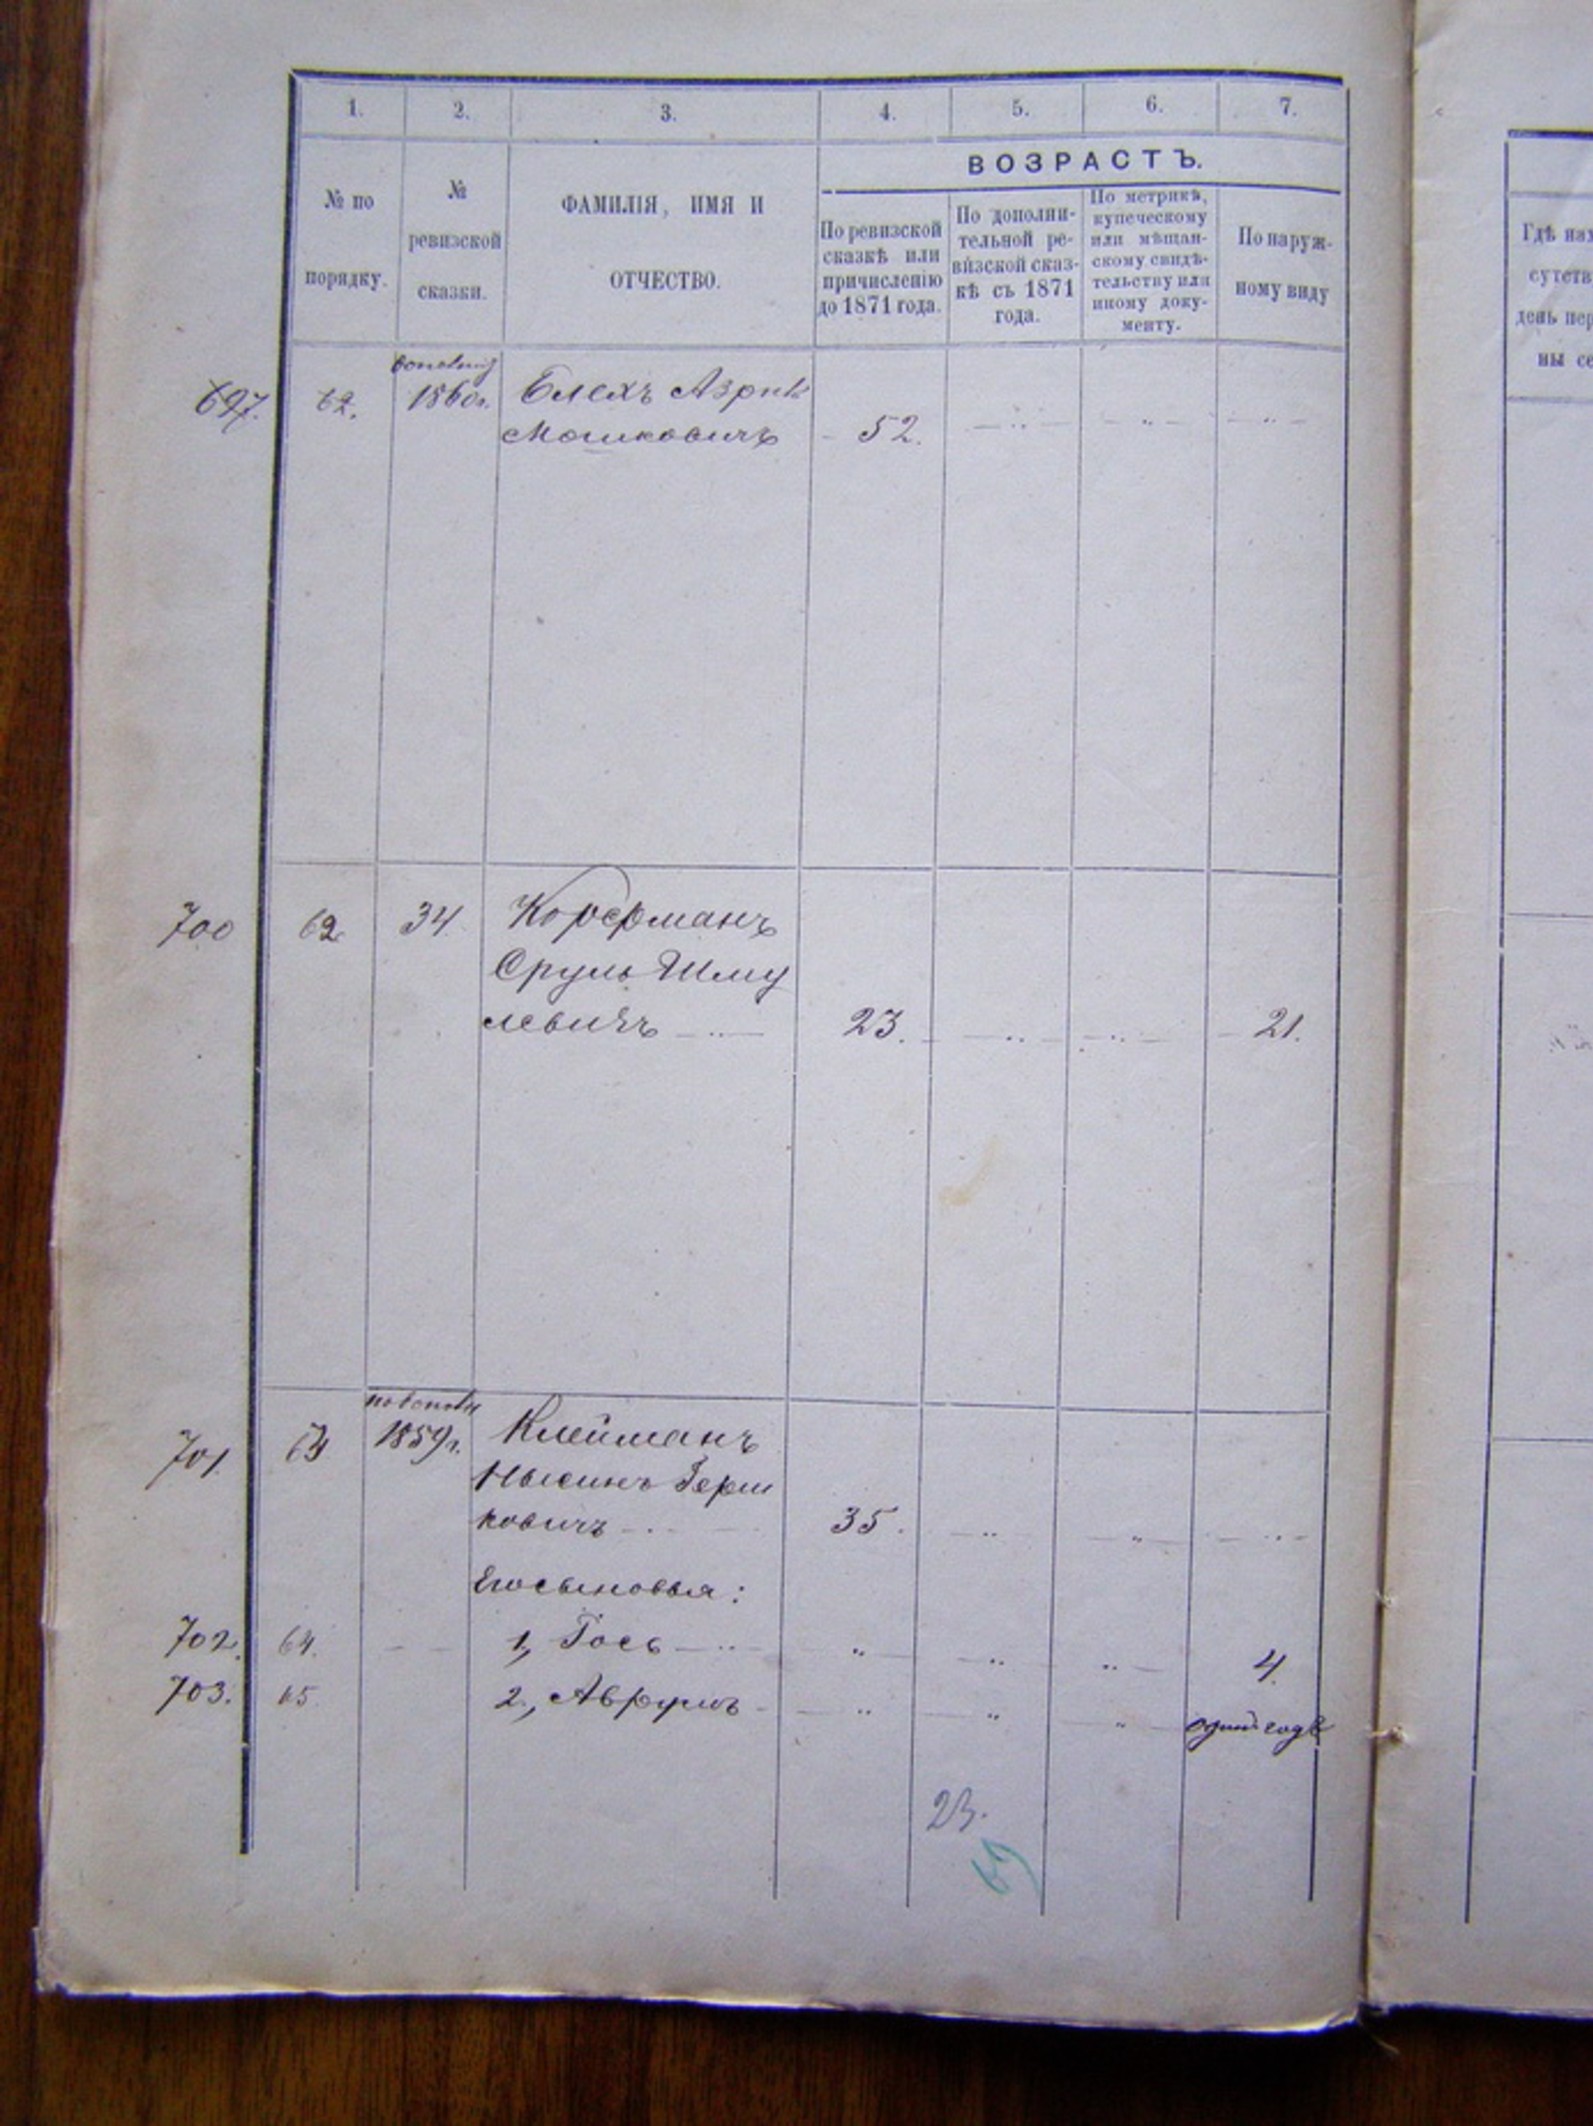 1. 2. 3. 4. 5. 6. 7.
№ по порядку.
№ ревизской сказки.
ФАМИЛІЯ, ИМЯ И
ОТЧЕСТВО.
ВОЗРАСТЪ.
По ревизской
сказкѣ или
причисленію
до 1871 года.
По дополни-
тельной ре-
визской сказ-
кѣ съ 1871
года.
По метрикѣ,
купеческому
или мѣщан-
скому свидѣ-
тельству или
иному доку-
менту.
По наруж-
ному виду
Гдѣ нах
сутств
день пер
ны се
697. 62. 1860г. Блехъ Азрил
Мошковичъ 52.
700 62 34 Коферманъ
Сруль Шму
левичъ 23. 21.
701. 63 1859г. Клейманъ
Нысинъ Герш
ковичъ 35.
Его сыновья:
702. 64. 1, Гось 4.
703. 65. 2, Аврумъ одинъ годъ
23.